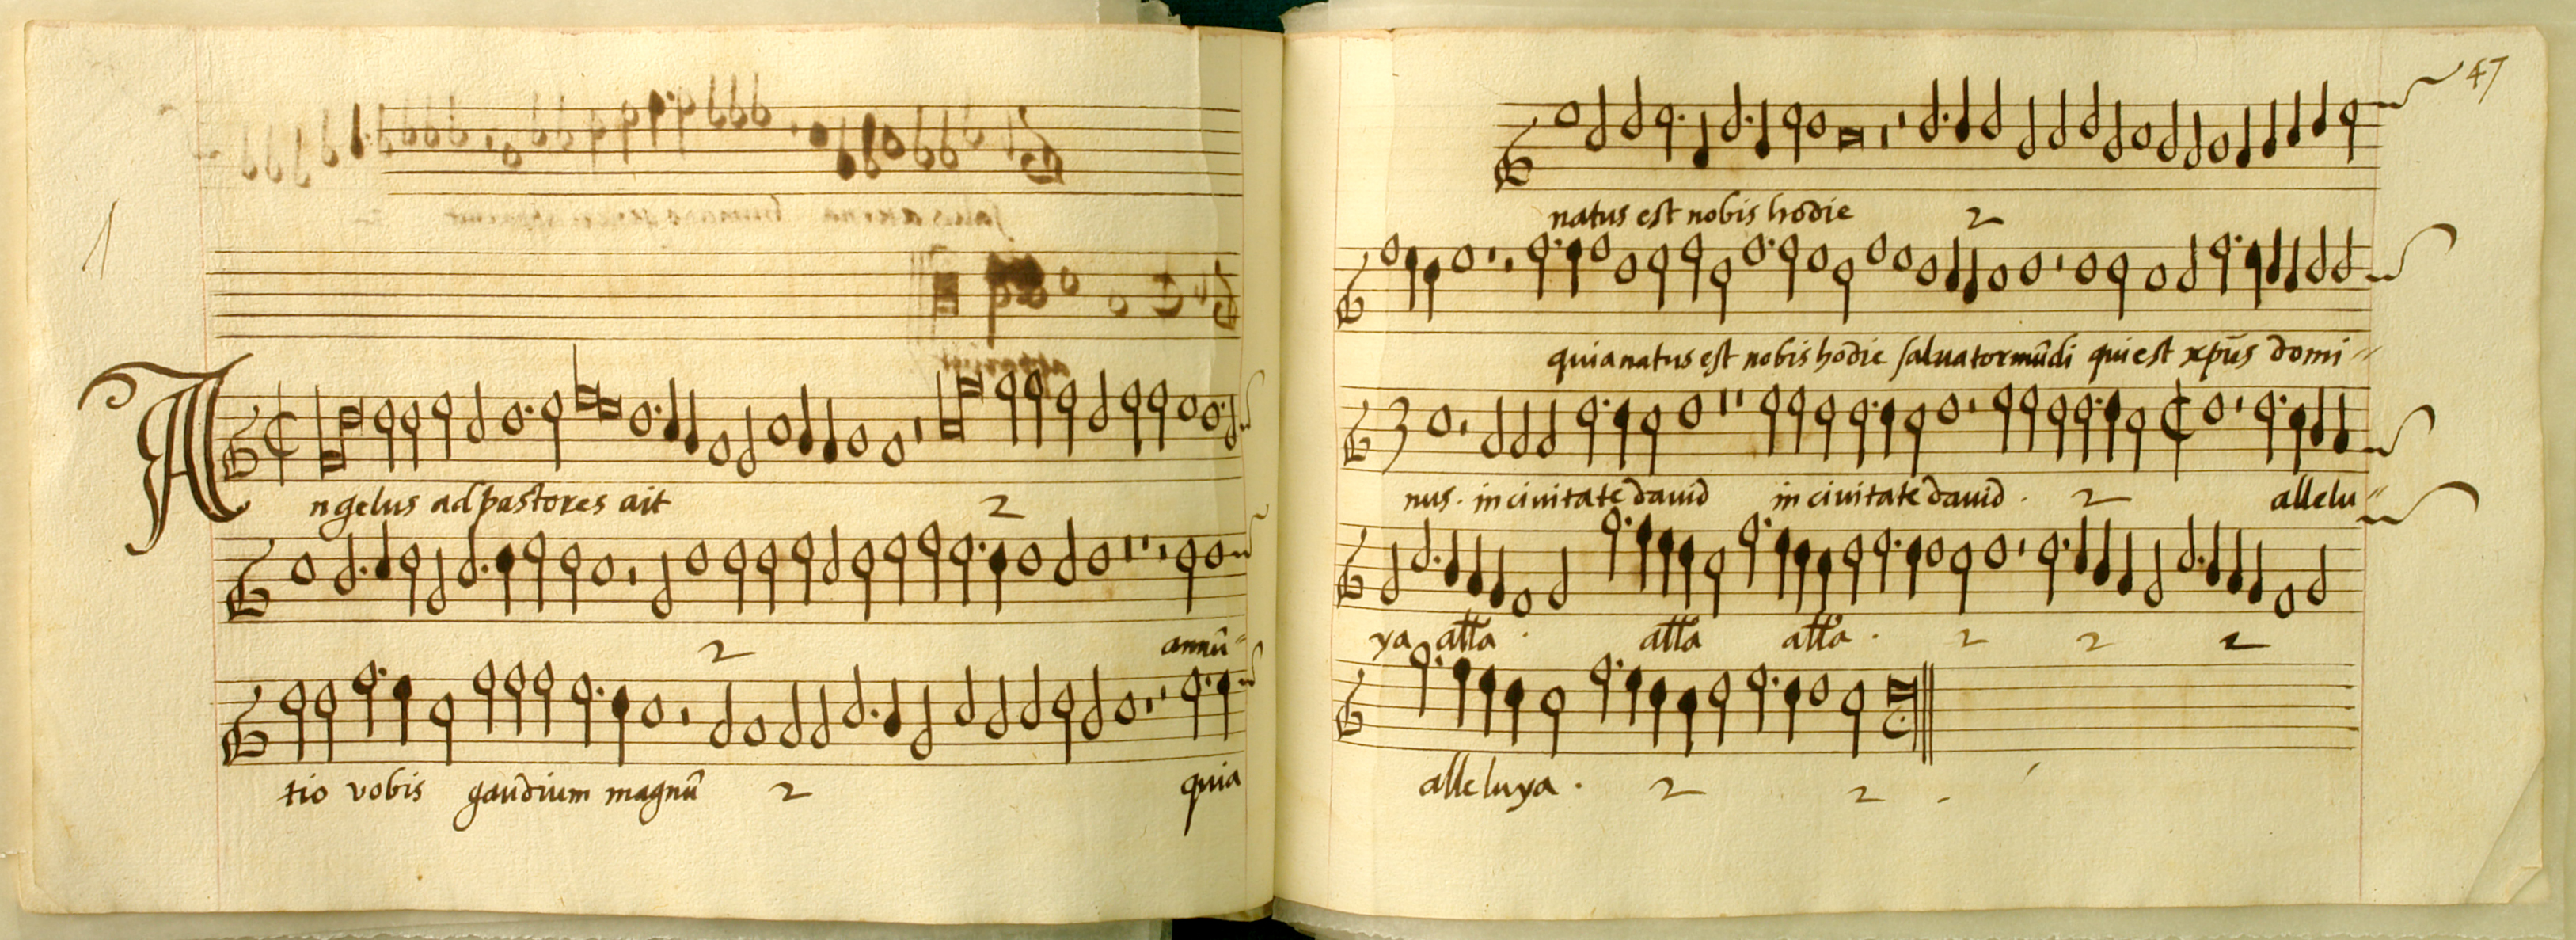 Angelus ad pastores ait 2
2 annũ=
tio vobis gaudium magnũ 2 quia
47
natus est nobis hodie 2
quia natus est nobis hodie saluator mũdi qui est xpũs domi=
nus. in ciuitate dauid in ciuitate dauid. 2 allelu=
ya alla. alla alla. 2 2 2
alleluya. 2 2